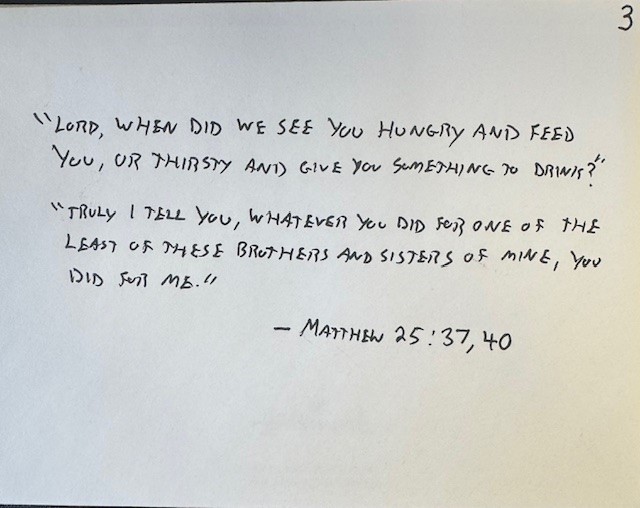 3
"LORD, WHEN DID WE SEE YOU HUNGRY AND FEED
YOU, OR THIRSTY AND GIVE YOU SOMETHING TO DRINK?"
"TRULY I TELL YOU, WHATEVER YOU DID FOR ONE OF THE
LEAST OF THESE BROTHERS AND SISTERS OF MINE, YOU
DID FOR ME."
— MATTHEW 25:37,40